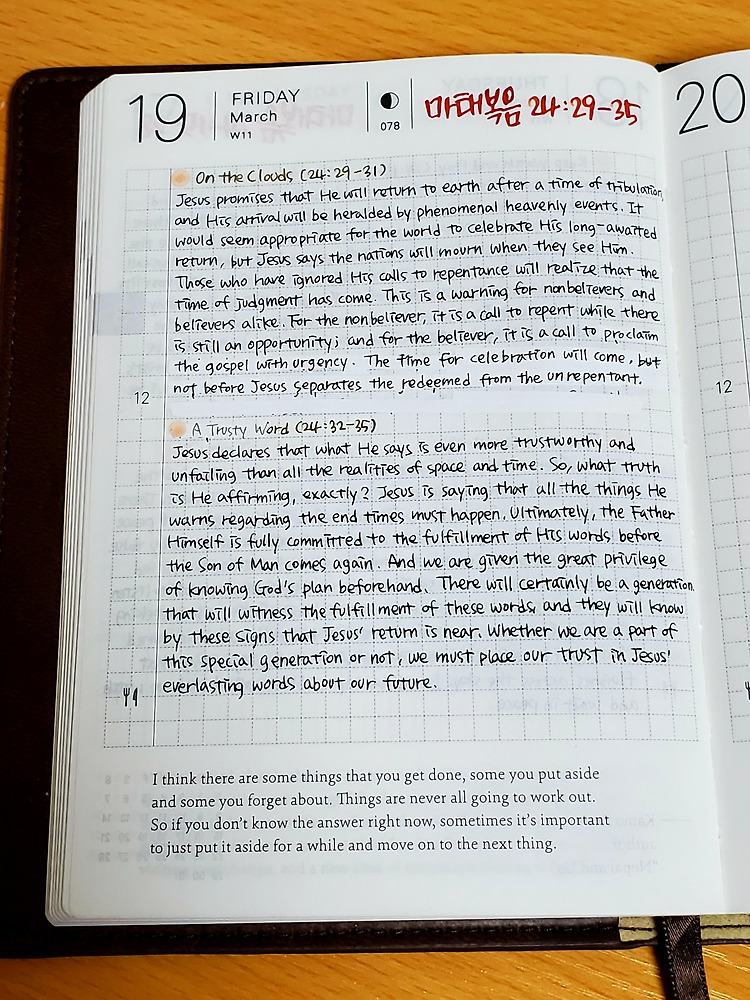 19
FRIDAY
March
W11
078
마태복음 24:29-35
20
On the Clouds (24:29-31)
Jesus promises that He will return to earth after a time of tribulation,
and His arrival will be heralded by phenomenal heavenly events. It
would seem appropriate for the world to celebrate His long-awaited
return, but Jesus says the nations will mourn when they see Him.
Those who have ignored His calls to repentance will realize that the
time of judgment has come. This is a warning for nonbelievers and
believers alike. For the nonbeliever, it is a call to repent while there
is still an opportunity; and for the believer, it is a call to proclaim
the gospel with urgency. The time for celebration will come, but
12
not before Jesus separates the redeemed from the unrepentant.
12
A Trusty Word (24:32-35)
Jesus declares that what He says is even more trustworthy and
unfailing than all the realities of space and time. So, what truth
is He affirming, exactly? Jesus is saying that all the things He
warns regarding the end times must happen. Ultimately, the Father
Himself is fully committed to the fulfillment of His words before
the Son of Man comes again. And we are given the great privilege
of knowing God's plan beforehand. There will certainly be a generation
that will witness the fulfillment of these words, and they will know
by these signs that Jesus' return is near. Whether we are a part of
this special generation or not, we must place our trust in Jesus'
everlasting words about our future.
I think there are some things that you get done, some you put aside
and some you forget about. Things are never all going to work out.
So if you don't know the answer right now, sometimes it's important
to just put it aside for a while and move on to the next thing.